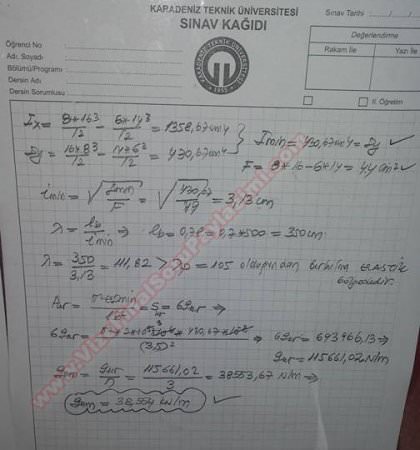 KARADENİZ TEKNİK ÜNİVERSİTESİ
SINAV KAĞIDI
Sınav Tarihi : ..../..../....
Öğrenci No
Adı, Soyadı
Bölümü/Programı
Dersin Adı
Dersin Sorumlusu
Değerlendirme
Rakam İle
Yazı İle
1955
II. Öğretim
Ix = 8*16³/12 - 6*14³/12 = 1358,67cm⁴
Iy = 16*8³/12 - 14*6³/12 = 430,67cm⁴
Imin = 430,67cm⁴ = Iy ✓
F = 8*16-6*14 = 44 cm² ✓
imin = √(Imin/F) = √(430,67/44) = 3,13 cm
λ = lb/imin ⇒ lb = 0,7l = 0,7*500 = 350cm
λ = 350/3,13 = 111,82 > λ0 = 105 olduğundan burkulma ELASTİK
bölgesidir.
= 6qkr
6qkr = ⇒ 6qkr = 693966,13 ⇒
(3,5)²
qkr = 115661,02 N/m
qem = qkr/n = 115661,02/3 = 38553,67 N/m ⇒
qem = 38,554 kN/m ✓